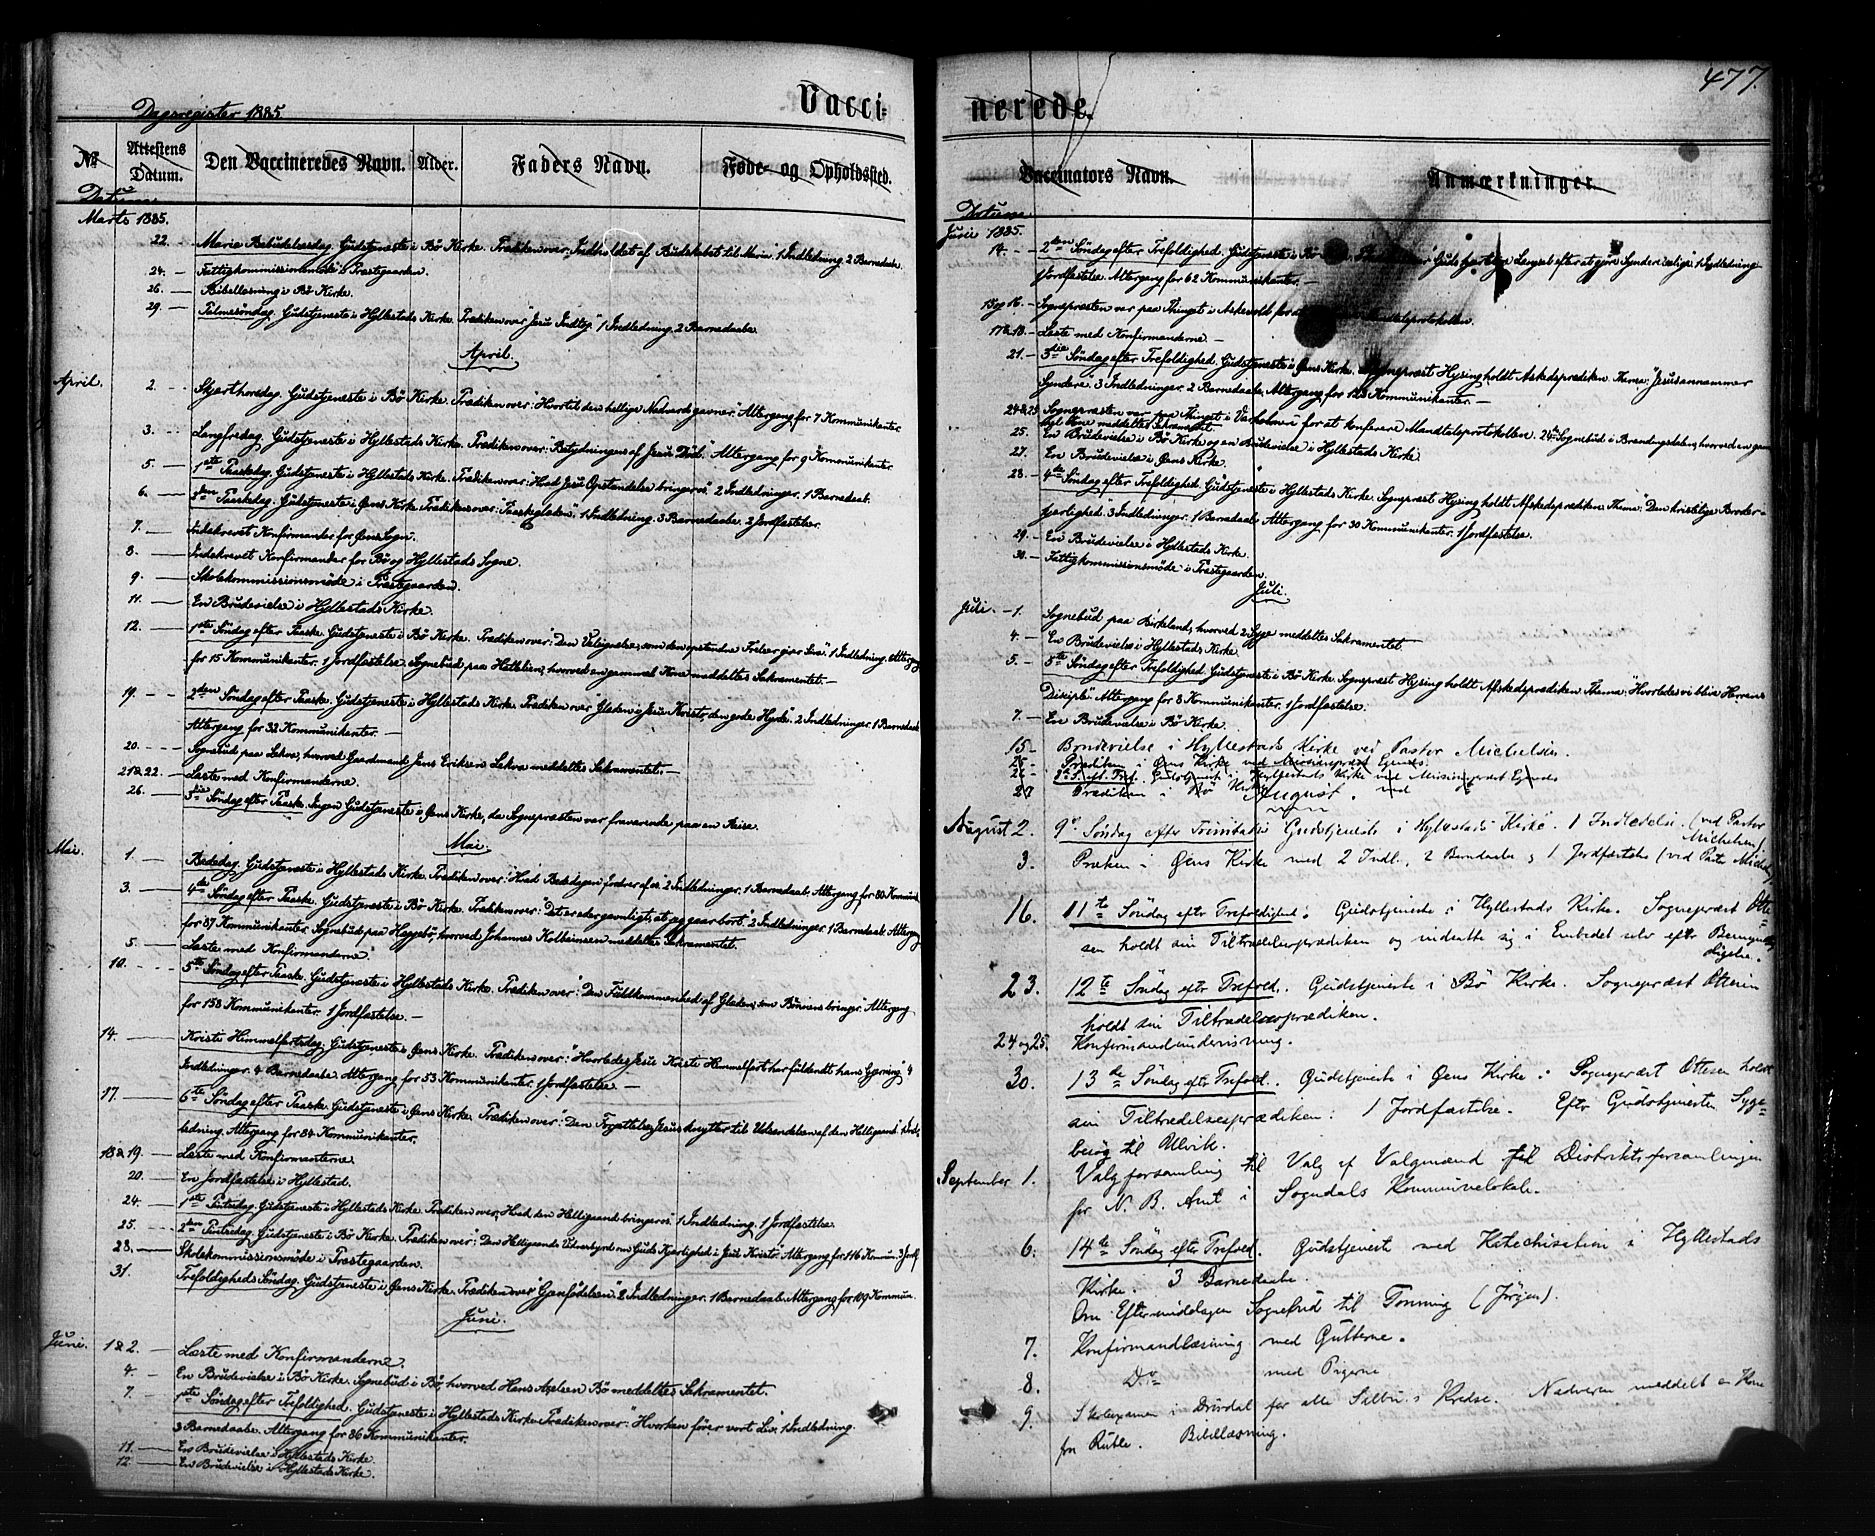 477.
Dagsregister 1885
Vacci- nerede.
No Attestens Datum. Den Vaccineredes Navn. Alder. Faders Navn. Føde- og Opholdssted.
Datum
Marts 1885.
22. Mariæ Bebudelsesdag. Gudstjeneste i Bø Kirke. Prædiken over: "Indholdet af Budskabet til Maria". 1 Indledning. 2 Barnedaabe.
24. Fattigkommissionsmøde i Præstegaarden.
26. Bibellæsning i Bø Kirke.
29. Palmesøndag. Gudstjeneste i Hyllestads Kirke. Prædiken over "Jesu Indtog". 1 Indledning. 2 Barnedaabe.
April.
April. 2. Skjærthorsdag. Gudstjeneste i Bø Kirke. Prædiken over: "Hvortil den hellige Nadverd gavner". Altergang for 7 Kommunikanter.
3. Langfredag. Gudstjeneste i Hyllestads Kirke. Prædiken over: "Betydningen af Jesu Død". Altergang for 9 Kommunikanter.
5. 1ste Paaskedag. Gudstjeneste i Hyllestads Kirke. Prædiken over: "Hvad Jesu Opstandelse bringer os". 2 Indledninger. 1 Barnedaab.
6. 2den Paaskedag. Gudstjeneste i Øens Kirke. Prædiken over: "Paaskeglæden". 1 Indledning. 3 Barnedaabe. 2 Jordfæstelser.
7. Indskrevet Konfirmander for Øens Sogn.
8. Indskrevet Konfirmander for Bø og Hyllestads Sogne.
9. Skolekommissionsmøde i Præstegaarden.
11. En Brudevielse i Hyllestads Kirke.
12. 1ste Søndag efter Paaske. Gudstjeneste i Bø Kirke. Prædiken over: "Den Velsignelse, som den opstandne Frelser giver Sine". 1 Indledning. Altergang
for 15 Kommunikanter. 1 Jordfæstelse. Sognebud paa Hatlelien, hvorved en gammel Kone meddeltes Sakramentet.
19. 2den Søndag efter Paaske. Gudstjeneste i Hyllestads Kirke. Prædiken over "Glæden i Jesu Kristo, den gode Hyrde". 2 Indledninger. 1 Barnedaab.
Altergang for 32 Kommunikanter.
20. Sognebud paa Lekva, hvorved Gaardmand Jens Eriksen Lekva meddeltes Sakramentet.
21 & 22. Læste med Konfirmanderne.
26. 3die Søndag efter Paaske. Ingen Gudstjeneste i Øens Kirke, da Sognepræsten var fraværende, paa en Reise.
Mai.
Mai. 1. Bededag. Gudstjeneste i Hyllestads Kirke. Prædiken over: "Hvad Bededagen fordrer af os". 2 Indledninger. 1 Barnedaab. Altergang for 80 Kommun.
3. 4de Søndag efter Paaske. Gudstjeneste i Bø Kirke. Prædiken over: "Det er eder gavnligt, at jeg gaar bort". 2 Indledninger. 1 Barnedaab. Altergang
for 87 Kommunikanter. Sognebud paa Heggebø, hvorved Johannes Kolbeinsen meddeltes Sakramentet.
5. Læste med Konfirmanderne.
10. 5te Søndag efter Paaske. Gudstjeneste i Hyllestads Kirke. Prædiken over: "Den Fuldkommenhed af Glæden, som Bønnen bringer". Altergang
for 158 Kommunikanter. 1 Jordfæstelse.
14. Kristi Himmelfartsdag. Gudstjeneste i Øens Kirke. Prædiken over: "Hvorledes Jesu Kriste Himmelfart har fuldendt hans Gjerning". 4
Indledninger. 4 Barnedaabe. Altergang for 53 Kommunikanter. 1 Jordfæstelse.
17. 6te Søndag efter Paaske. Gudstjeneste i Øens Kirke. Prædiken over: "Den Forjættelse, Jesus knytter til Udsendelsen af den Helligaand". 1 Ind-
ledning. Altergang for 84 Kommunikanter.
18 & 19. Læste med Konfirmanterne.
20. En Jordfæstelse i Hyllestad.
24. 1ste Pintsedag. Gudstjeneste i Hyllestads Kirke. Prædiken over, "Hvad den Helligaand bringer os". 1 Indledning. 1 Jordfæstelse.
25. 2den Pintsedag. Gudstjeneste i Bø Kirke. Prædiken over: "Den Helligaands Vidnesbyrd om Guds Kjærlighed i Jesu Kristo". Altergang for 116 Kommun. 3 Jordf.
28. Skolekommissionsmøde i Præstegaarden.
31. Trefoldigheds Søndag. Gudstjeneste i Øens Kirke. Prædiken over "Gjenfødelsen". 2 Indledninger. 1 Barnedaab. Altergang for 109 Kommun.
Juni.
Juni. 1 & 2. Læste med Konfirmanderne.
4. En Brudevielse i Bø Kirke. Sognebud i Bø, hvorved Hans Axelsen Bø meddeltes Sakramentet.
7. 1ste Søndag efter Trefoldighed. Gudstjeneste i Hyllestads Kirke. Prædiken over: "Hvorhen fører vort Liv". 1 Indledning.
3 Barnedaabe. Altergang for 86 Kommunikanter.
11. En Brudevielse i Hyllestads Kirke.
12. En Brudevielse i Hyllestads Kirke.
Vaccinators Navn. Anmærkninger.
Datum
Juni 1885.
14. 2den Søndag efter Trefoldighed. Gudstjeneste i Bø Guds Længsel efter at gjøre Syndere salige. 1 Indledning.
Jordfæstelse. Altergang for 62 Kommunikanter.
15 og 16. Sognepræsten var paa Thinget i Askevold for Mandtalsprotokollen.
17 & 18. Læste med Konfirmanderne.
21. 3die Søndag efter Trefoldighed. Gudstjeneste i Øens Kirke. Sognepræst Hysing holdt Afskedsprædiken. Thema: "Jesus annammer
Syndere. 3 Indledninger. 2 Barnedaabe. Altergang for 128 Kommunikanter.
24 & 25. Sognepræsten var paa Thinget i Værholmen for at konferere Mandtalsprotokollen. 24de Sognebud i Brandingsdalen, hvorved en gammel
syg Kone meddeltes Sakramentet.
25. En Brudevielse i Bø Kirke og en Brudevielse i Hyllestads Kirke.
27. En Brudevielse i Øens Kirke.
28. 4de Søndag efter Trefoldighed. Gudstjeneste i Hyllestads Kirke. Sognepræst Hysing holdt Afskedsprædiken. Thema: "Den kristelige Broder-
kjærlighed. 3 Indledninger. 1 Barnedaab. Altergang for 30 Kommunikanter. 1 Jordfæstelse.
29. En Brudevielse i Hyllestads Kirke.
30. Fattigkommissionsmøde i Præstegaarden.
Juli.
Juli. 1. Sognebud paa Birkeland, hvorved 2 Syge meddeltes Sakramentet.
4. En Brudevielse i Hyllestads Kirke.
5. 5te Søndag efter Trefoldighed. Gudstjeneste i Bø Kirke. Sognepræst Hysing holdt Afskedsprædiken. Thema: "Hvorledes vi blive Herrens
Disciple". Altergang for 8 Kommunikanter. 1 Jordfæstelse.
7. En Brudevielse i Bø Kirke.
15 Brudevielse i Hyllestads Kirke ved Pastor Michelsen.
25 Prædiken i Øens Kirke ved Missionspræst Egenes.
26 8de S. eft. Tref. Gudstjenest i Hyllestads Kirke ved Missionspræst Egenes
27 Prædiken i Bø Kirke ved
August.
August 2. 9de Søndag efter Trinitatis Gudstjeneste i Hyllestads Kirke. 1 Indledelse. (ved Pastor
Michelsen)
3. Præken i Øens Kirke med 2 Indl., 2 Barndaabe og 1 Jordfæstelse (ved Past. Michelsen)
16. 11te Søndag efter Trefoldighed. Gudstjeneste i Hyllestads Kirke. Sognepræst Otte-
sen holdt sin Tiltrædelsesprædiken og indsatte sig i Embedet selv efter Bemyn-
digelse.
23. 12te Søndag efter Trefold. Gudstjeneste i Bø Kirke. Sognepræst Ottesen
holdt sin Tiltrædelsesprædiken.
24 og 25. Konfirmandundervisning.
30. 13de Søndag efter Trefold. Gudstjeneste i Øens Kirke. Sognepræst Ottesen holdt
sin Tiltrædelsesprædiken. 1 Jordfæstelse. Efter Gudstjenesten Syge-
besøg til Ulvik.
September 1. Valgforsamling til Valg af Valgmænd til Distriktsforsamlingen
for N. B. Amt i Sogndals Kommunelokale.
6. 14de Søndag efter Trefold. Gudstjeneste med Katechisation i Hyllestads
Kirke. 3 Barnedaabe.
Om Eftermiddagen Sognebud til Tonning (Jørgen).
7. Konfirmandlæsning med Gutterne.
8. Do med Pigerne
9. Skoleexamen i Drivdal for alle Kredse. Nadveren meddelt en Kone
fra Risle. Bibellæsning.